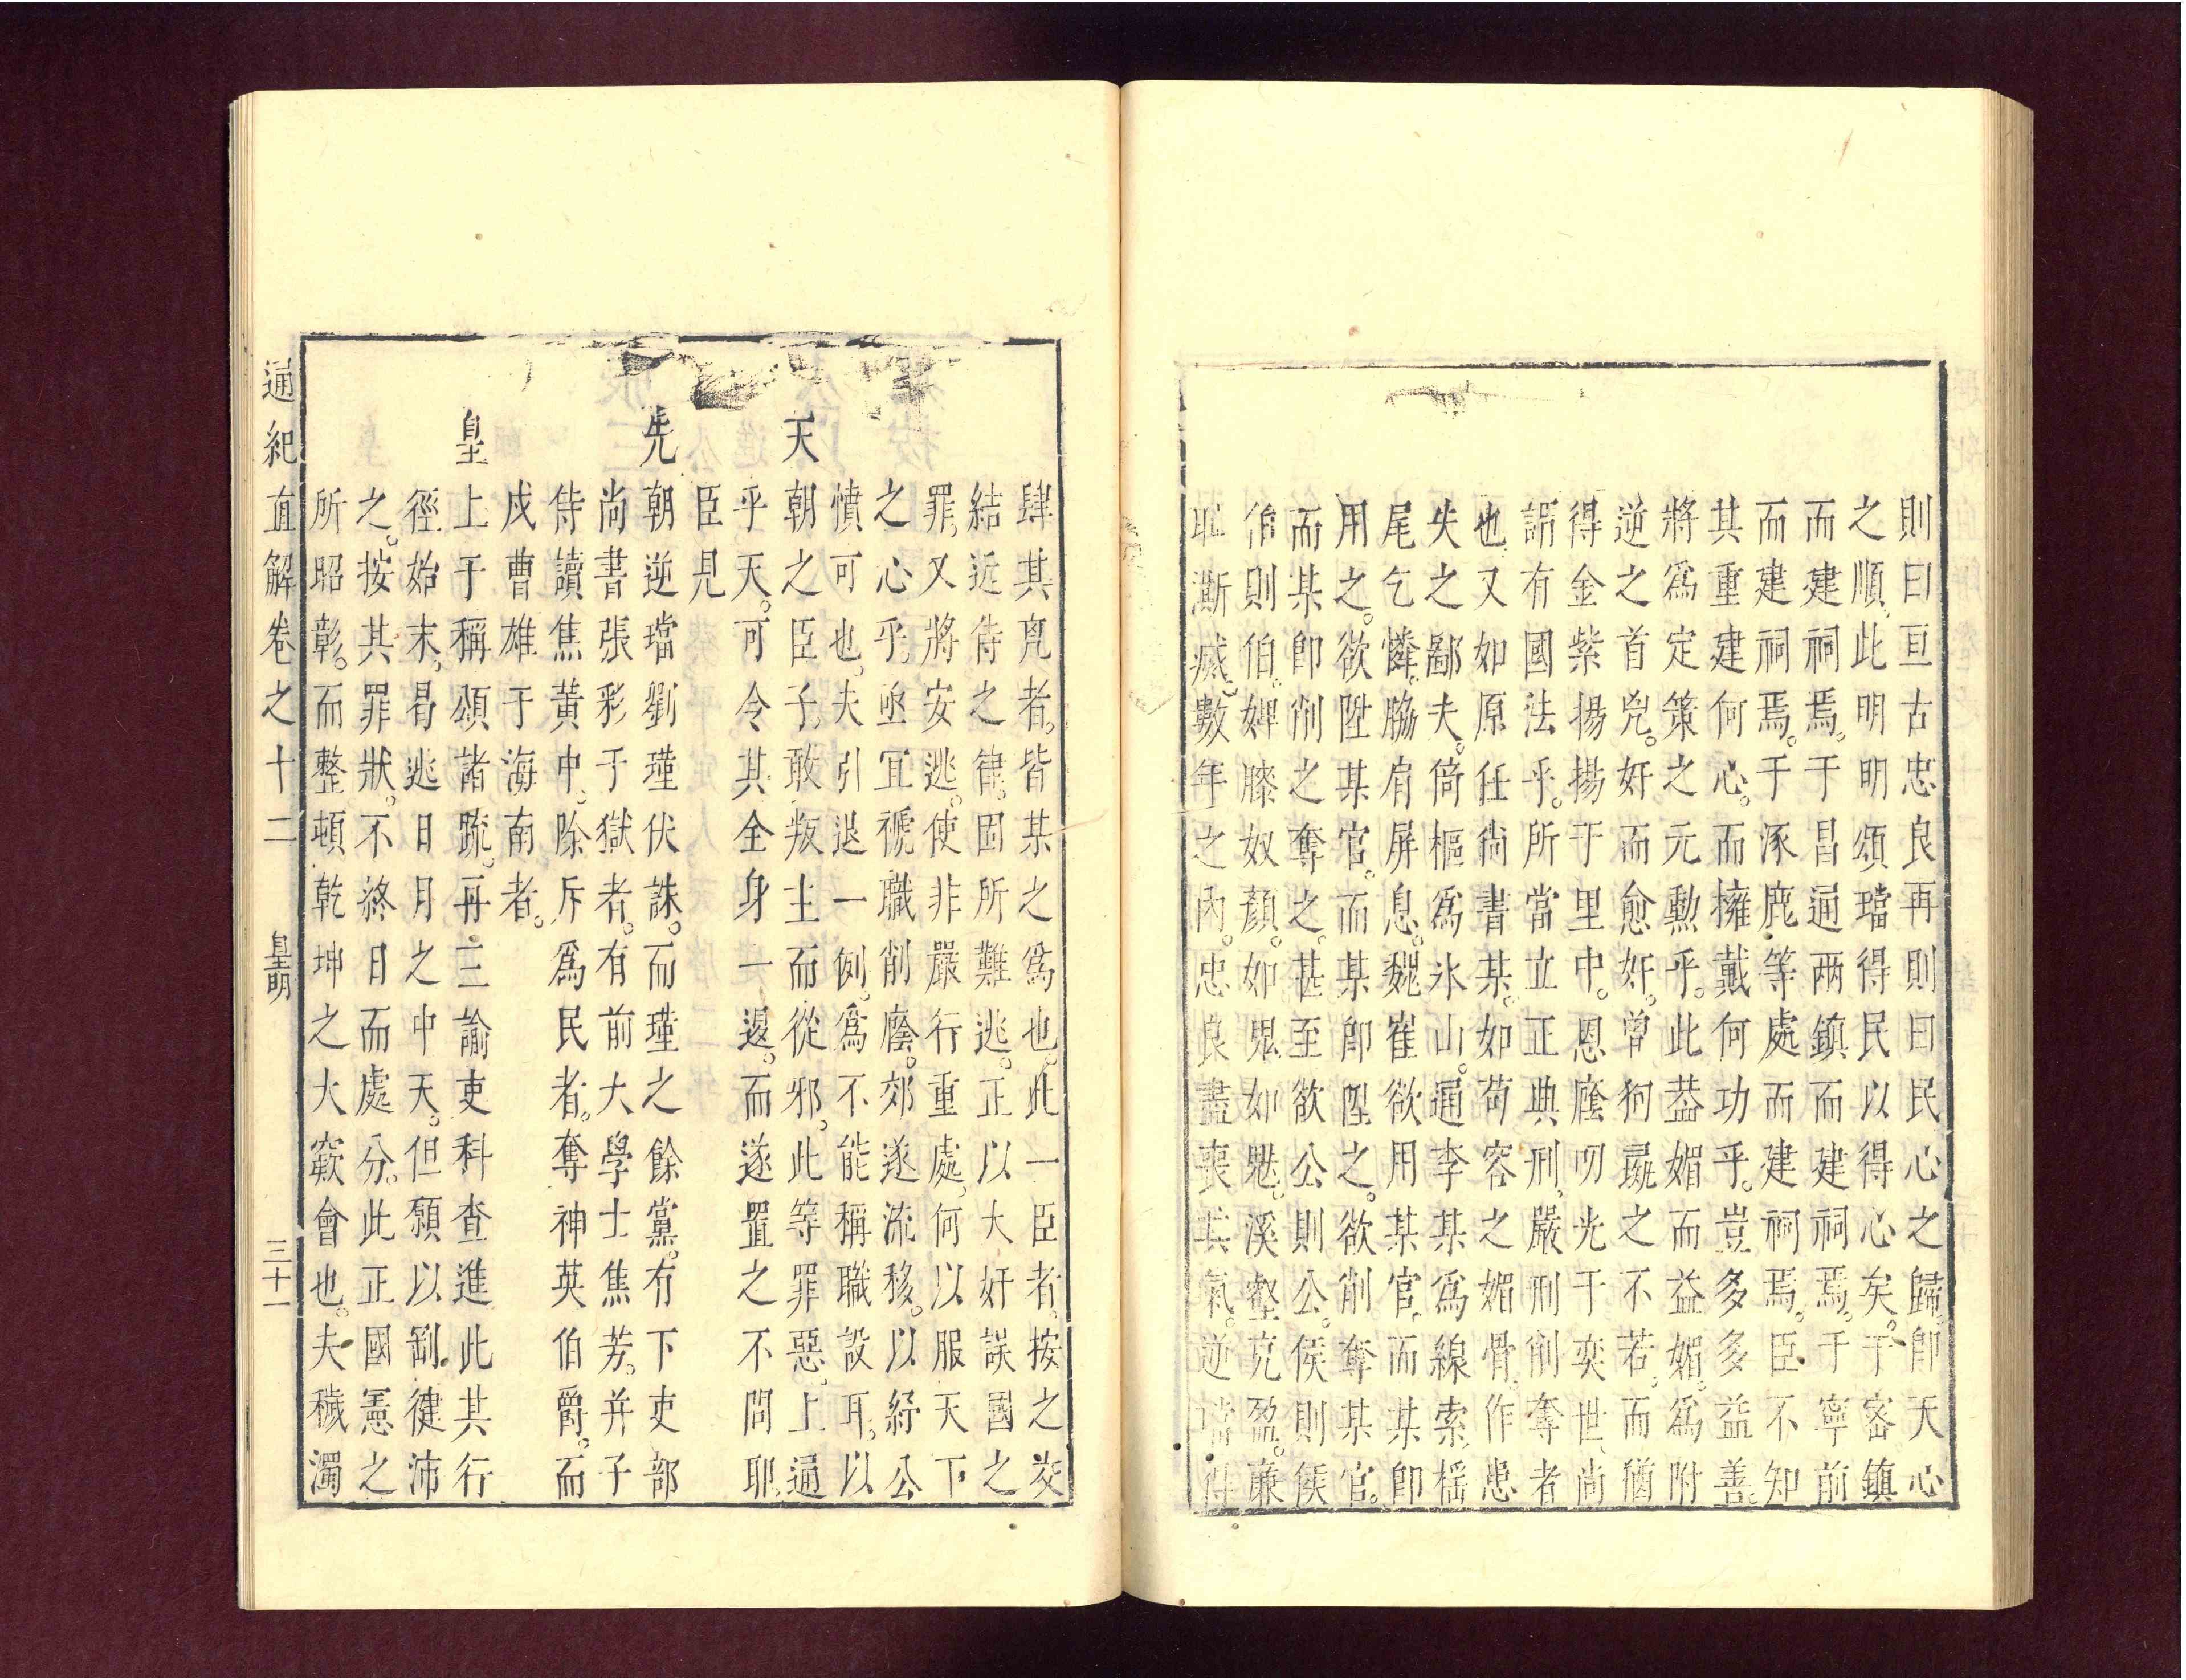 則曰亘古忠良再則曰民心之歸即天心
之順此明明頌璫得民以得心矣于密鎮
而建祠焉于昌通兩鎮而建祠焉于寧前
而建祠焉于涿鹿等處而建祠焉臣不知
其重建何心而擁戴何功乎豈多多益善
將為定策之元勳乎此葢媚而益媚為附
逆之首兇奸而愈奸曾狗彘之不若而猶
得金紫揚揚于里中恩廕叨光于奕世尚
謂有國法乎所當立正典刑嚴刑削奪者
也又如原任尚書某如苟容之媚骨作患
失之鄙夫倚樞為氷山逼李某為線索搖
尾乞憐脇肩屏息魏崔欲用某官而某即
用之欲陞某官而某即陞之欲削奪某官
而某即削之奪之甚至欲公則公侯則侯
伯則伯婢膝奴顏如鬼如魅溪壑克盈廉
耻澌滅數年之內忠良盡喪其氣逆璫
肆其兇者皆某之為也此一臣者按之交
結近侍之律固所難逃正以大奸誤國之
罪又將安逃使非嚴行重處何以服天下
之心乎亟宜褫職削廕郊遂流移以紓公
憤可也夫引退一例為不能稱職設耳以
天朝之臣子敢叛主而從邪此等罪惡上通
乎天可令其全身一退而遂置之不問耶
臣見
先朝逆璫劉瑾伏誅而瑾之餘黨有下吏部
尚書張彩于獄者有前大學士焦芳并子
侍讀焦黃中除斥為民者奪神英伯爵而
戍曹雄于海南者
皇上于稱頌諸疏再三諭吏科查進此其行
徑始末曷逃日月之中天但願以劄健沛
之按其罪狀不終日而處分此正國憲之
所昭彰而整頓乾坤之大窾會也夫穢濁
通紀直解卷之十二　皇明　三十一